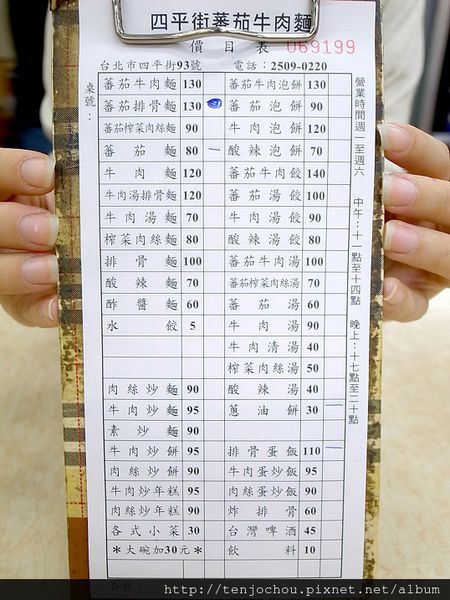 四平街蕃茄牛肉麵
價目表 069199
台北市四平街93號 電話：2509-0220
桌號：
蕃茄牛肉麵 130 蕃茄牛肉泡餅 130
蕃茄排骨麵 130 蕃茄泡餅 90
蕃茄榨菜肉絲麵 90 牛肉泡餅 120
蕃茄麵 80 酸辣泡餅 70
牛肉麵 120 蕃茄牛肉餃 140
牛肉湯排骨麵 120 蕃茄湯餃 100
牛肉湯麵 70 牛肉湯餃 90
榨菜肉絲麵 80 酸辣湯餃 80
排骨麵 100 蕃茄牛肉湯 100
酸辣麵 70 蕃茄榨菜肉絲湯 70
酢醬麵 60 蕃茄湯 60
水餃 5 牛肉湯 90
牛肉清湯 40
榨菜肉絲湯 50
肉絲炒麵 90 酸辣湯 40
牛肉炒麵 95 蔥油餅 30
素炒麵 90
牛肉炒餅 95 排骨蛋飯 110
肉絲炒餅 90 牛肉蛋炒飯 95
牛肉炒年糕 95 肉絲蛋炒飯 90
肉絲炒年糕 90 炸排骨 60
各式小菜 30 台灣啤酒 45
＊大碗加30元＊ 飲料 10
合計：
營業時間週一至週六 中午：十一點至十四點 晚上：十七點至二十點
http://tenjochou.pixnet.net/album